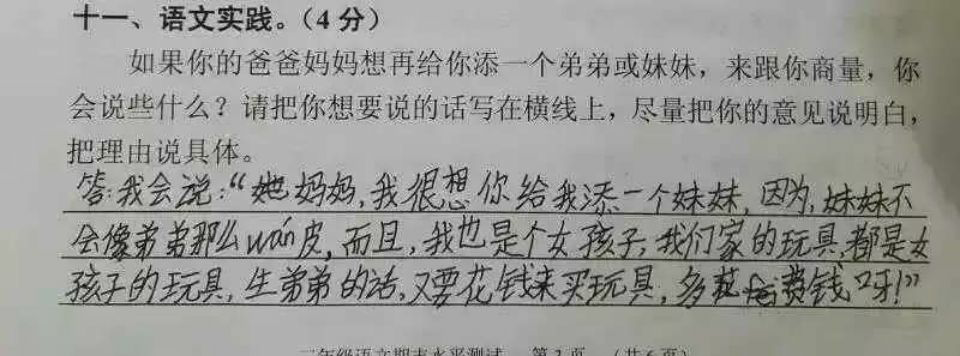 十一、语文实践。(4分)
如果你的爸爸妈妈想再给你添一个弟弟或妹妹，来跟你商量，你
会说些什么？请把你想要说的话写在横线上，尽量把你的意见说明白，
把理由说具体。
答:我会说:“妈妈,我很想你给我添一个妹妹,因为,妹妹不
会像弟弟那么wán皮,而且,我也是个女孩子,我们家的玩具,都是女
孩子的玩具,生弟弟的话,又要花钱来买玩具,多费钱呀!”
二年级语文期末水平测试 第3页 (共6页)